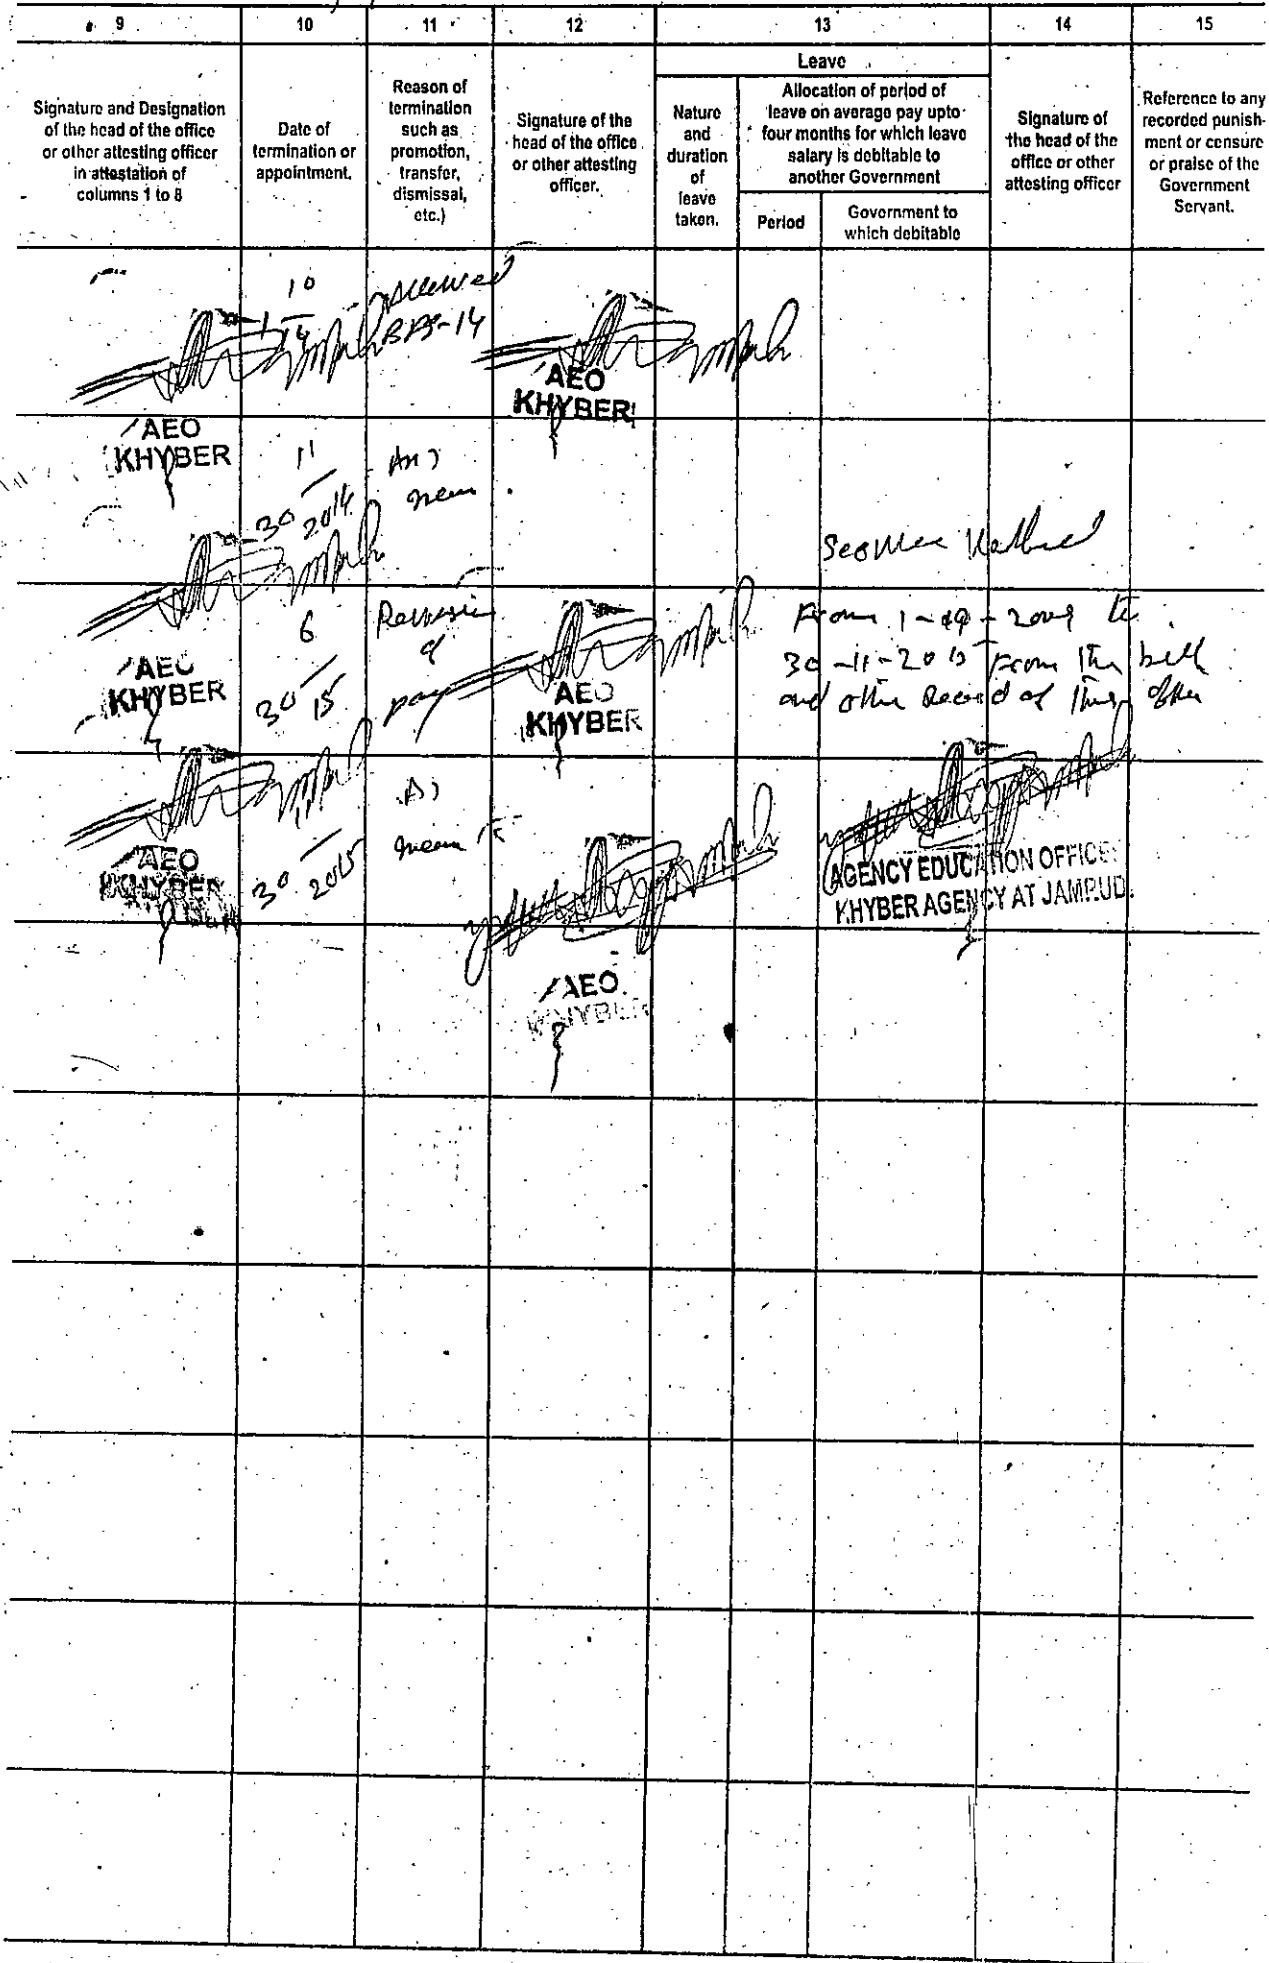 9
10
11
12
13
14
15
Signature and Designation
of the head of the office
or other attesting officer
in attestation of
columns 1 to 8
Date of
termination or
appointment.
Reason of
termination
such as
promotion,
transfer,
dismissal,
etc.)
Signature of the
head of the office
or other attesting
officer.
Leave
Nature
and
duration
of
leave
taken.
Allocation of period of
leave on average pay upto
four months for which leave
salary is debitable to
another Government
Period
Government to
which debitable
Signature of
the head of the
office or other
attesting officer
Reference to any
recorded punish-
ment or censure
or praise of the
Government
Servant.
10
1 14
BPS-14
AEO
KHYBER
AEO
KHYBER
11
30 2014
6
30 15
pay
AEO
KHYBER
AEO
KHYBER
From 1-09-2009 to
30-11-2015 From the
and other Record of this
11
30 2015
AEO
KHYBER
AEO
KHYBER
AGENCY EDUCATION OFFICE
KHYBER AGENCY AT JAMRUD.